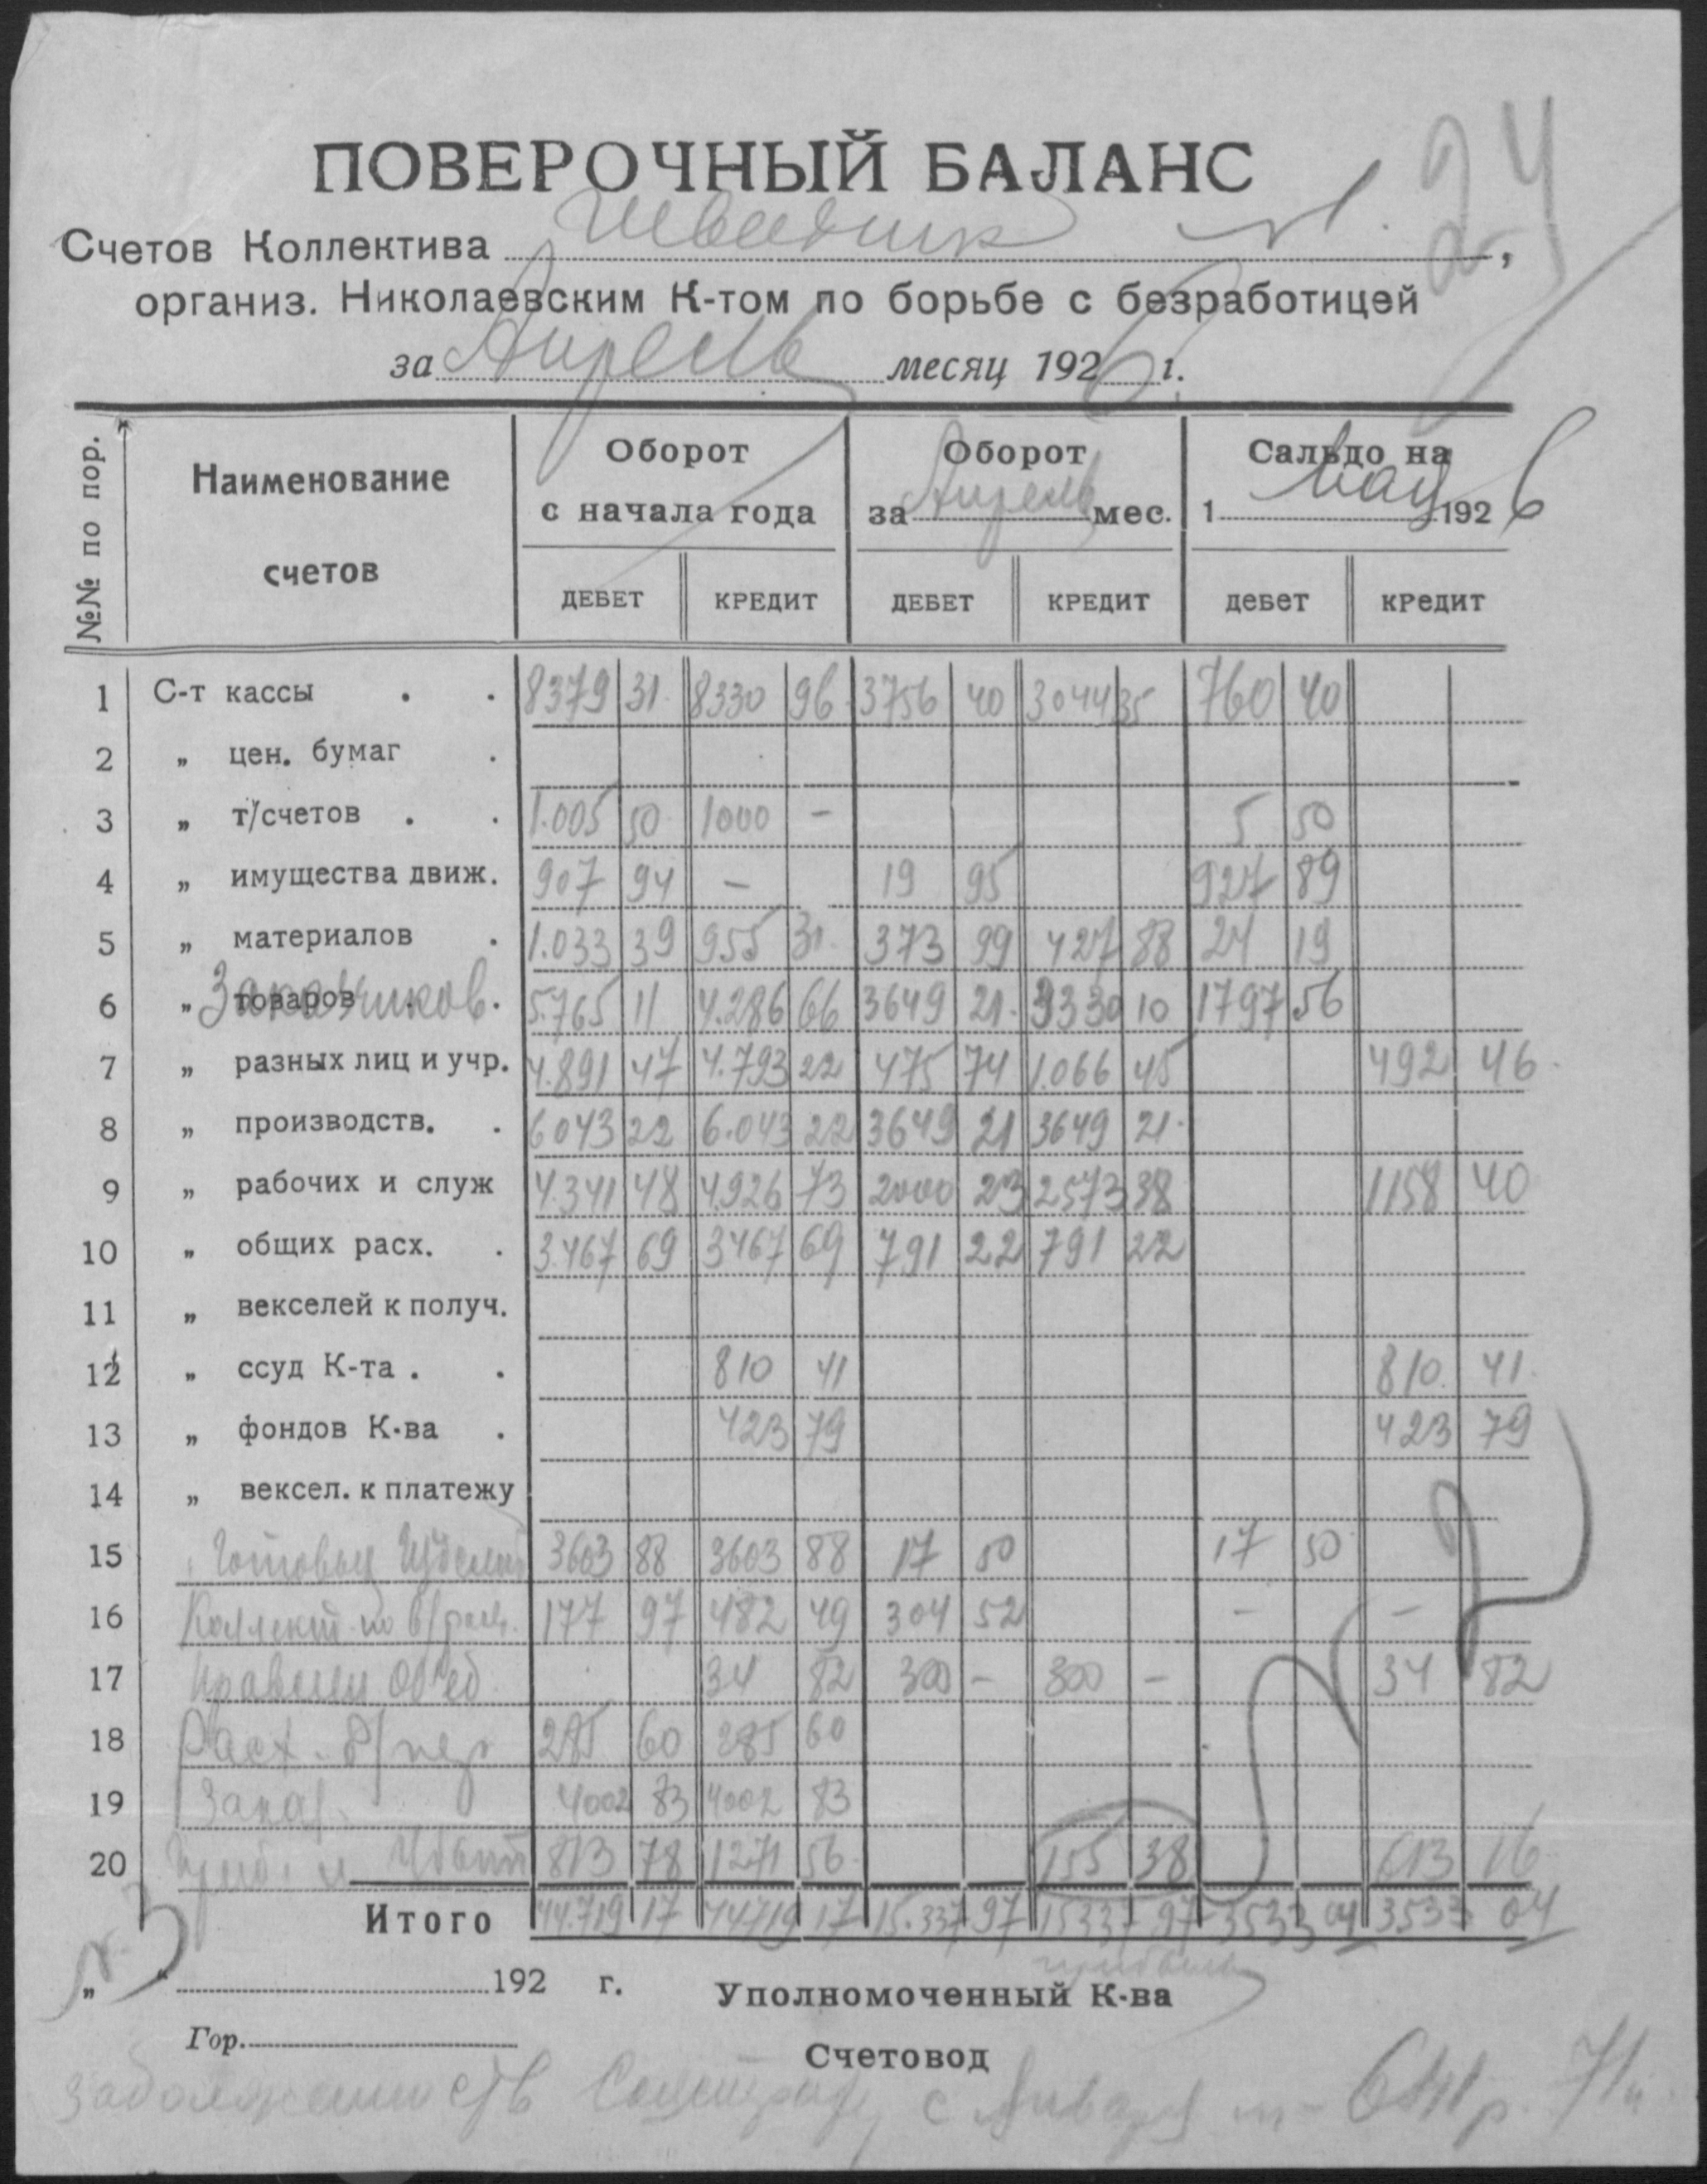 24
ПОВЕРОЧНЫЙ БАЛАНС
Счетов Коллектива Швейник
организ. Николаевским К-том по борьбе с безработицей
за Апрель месяц 1926 г.
№№ по пор. Наименование счетов Оборот с начала года Оборот за Апрель мес. Сальдо на 1 мая 1926
ДЕБЕТ КРЕДИТ ДЕБЕТ КРЕДИТ дебет кредит
1 С-т кассы . . 8379 31 8330 96 3756 40 3044 35 760 40
2 „ цен. бумаг .
3 „ т/счетов . . 1.005 50 1000 - 5 50
4 „ имущества движ. 907 94 - 19 95 927 89
5 „ материалов . 1.033 39 955 31 373 99 427 88 24 19
6 „ товаров Заказчиков . 5.765 11 4.286 66 3649 21 3330 10 1797 56
7 „ разных лиц и учр. 4.891 47 4.793 22 475 74 1.066 45 492 46
8 „ производств. . 6043 22 6.043 22 3649 21 3649 21
9 „ рабочих и служ 4.341 48 4.926 73 2000 23 2573 38 1158 40
10 „ общих расх. . 3.467 69 3467 69 791 22 791 22
11 „ векселей к получ.
12 „ ссуд К-та . . 810 41 810 41
13 „ фондов К-ва . 423 79 423 79
14 „ вексел. к платежу
15 Готовых Издел 3603 88 3603 88 17 50 17 50
16 Коллект. по 177 97 482 49 304 52 - -
17 Правлен Об'ед. 34 82 300 - 300 - 34 82
18 Расх. 285 60 285 60
19 Заказ. 4002 83 4002 83
20 Приб. и Убыт 813 78 1271 56 155 38 613 16
Итого 44.719 17 44719 17 15.337 97 15337 97 3533 04 3533 04
прибыль
„ “ 192 г. Уполномоченный К-ва
Гор. Счетовод
с Января 71